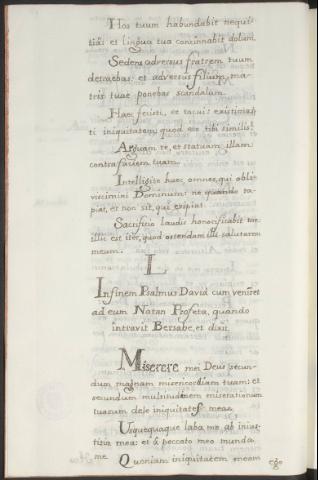 Hos tuum habundabit nequis
tiâs et lingua tua concinnabit dolum.
Sedens adversus fratrem tuum
detraebas: et adversus filium ma
tris tuae ponebas scandalum.
Haec fecisti, et tacui existimas
ti iniquitatem, quod ero tibi similis:
Arguam te, et statuam illam
contra faciem tuam.
Intelligite haec omnes, qui obli
viscimini Dominum: ne quando ra
piat, et non sit, qui eripiat.
Sacrificio laudis honorificabit me
illic est iter, quod ostendam illi salutarem
meum.
L
Infinem Psalmus David cum veniret
ad eum Natan Profeta, quando
intravit Bersabe, et dixit.
Miserere mei Deus secun
dum magnam misericordiam tuam: et
secundum multitudinem miserationum
tuarum dele iniquitates meas.
Usquequaque laba me, ab inius
titia mea: et à peccato meo munda
me. Quoniam iniquitatem meam